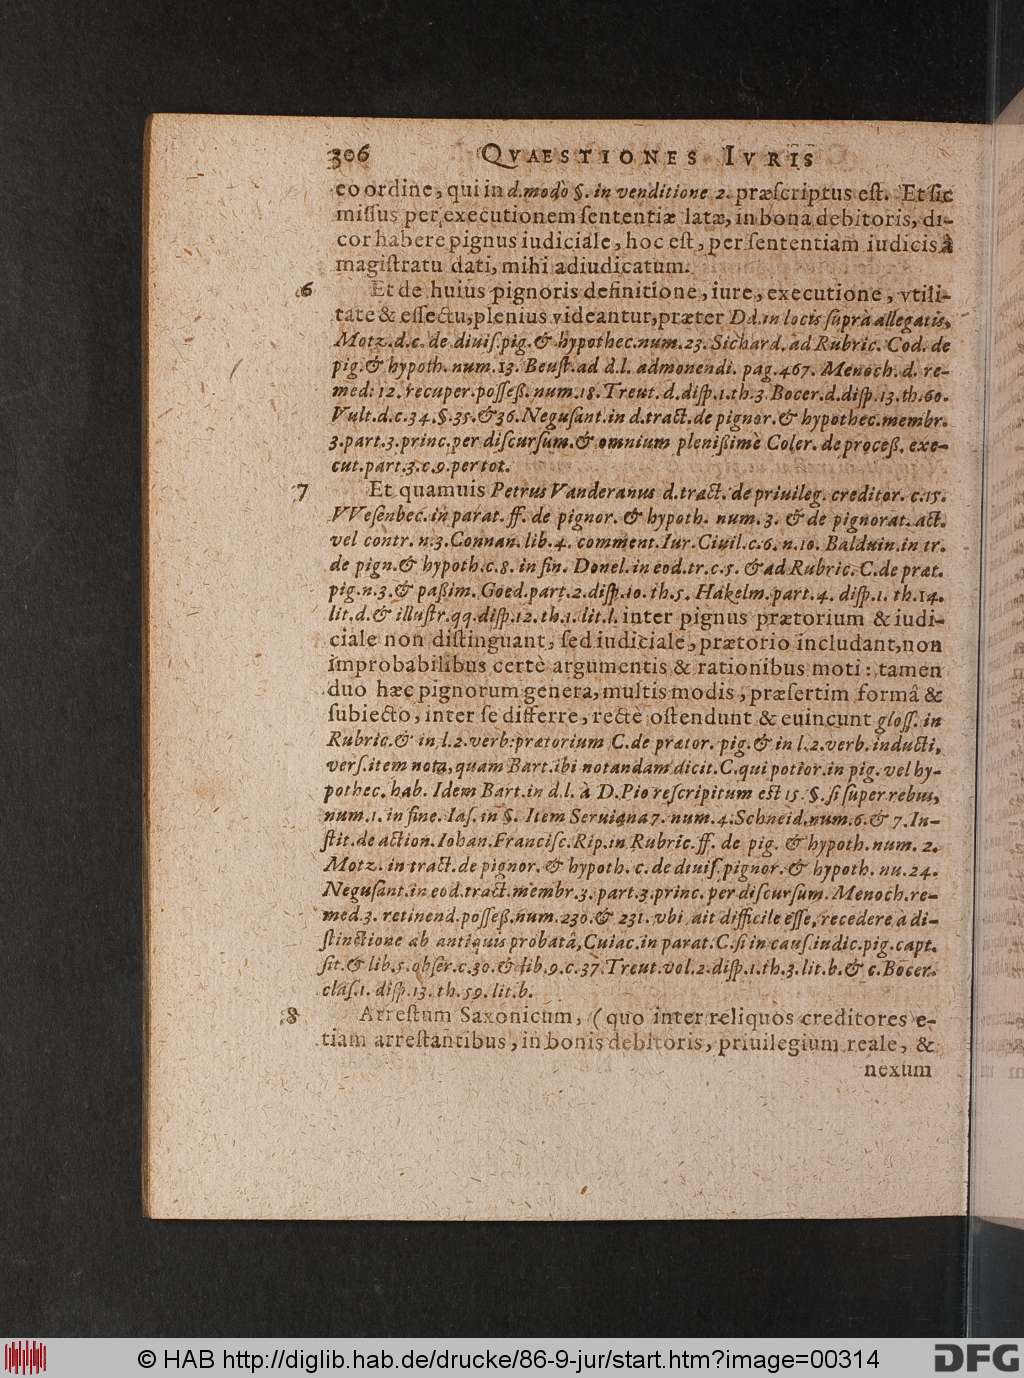 306 QVAESTIONES IVRIS
eo ordine, qui in d. modò §. in venditione 2. præscriptus est. Et sic
missus per executionem sententiæ latæ, in bona debitoris, di-
cor habere pignus iudiciale, hoc est, per sententiam iudicis à
magistratu dati, mihi adiudicatum.
6 Et de huius pignoris definitione, iure, executione, vtili-
tate & effectu, plenius videantur, præter Dd. in locis suprà allegatis,
Motz. d. c. de diuis. pig. & hypothec. num. 23. Sichard. ad Rubric. Cod. de
pig. & hypoth. num. 13. Beust. ad d. l. admonendi. pag. 467. Menoch. d. re-
med: 12. recuper. posseß. num. 18. Treut. d. disp. 1. th. 3. Bocer. d. disp. 13. th. 60.
Vult. d. c. 34. §. 35. & 36. Negusant. in d. tract. de pignor. & hypothec. membr.
3. part. 3. princ. per discursum. & omnium plenißimè Coler. de proceß. exe-
cut. part. 3. c. 9. per tot.
7 Et quamuis Petrus Vanderanus d. tract. de priuileg. creditor. c. 15.
VVesenbec. in parat. ff. de pignor. & hypoth. num. 3. & de pignorat. act.
vel contr. n. 3. Connan. lib. 4. comment. Iur. Ciuil. c. 6. n. 10. Balduin. in tr.
de pign. & hypoth. c. 8. in fin. Donel. in eod. tr. c. 5. & ad Rubric. C. de præt.
pig. n. 3. & paßim. Goed. part. 2. disp. 10. th. 5. Hakelm. part. 4. disp. 1. th. 14.
lit. d. & illustr. qq. disp. 12. th. 1. lit. l. inter pignus prætorium & iudi-
ciale non distinguant, sed iudiciale, prætorio includant, non
improbabilibus certè argumentis & rationibus moti: tamen
duo hæc pignorum genera, multis modis, præsertim formâ &
subiecto, inter se differre, rectè ostendunt & euincunt gloss. in
Rubric. & in l. 2. verb: prætorium C. de prætor. pig. & in l. 2. verb. inducti,
vers. item nota, quam Bart. ibi notandam dicit. C. qui potior. in pig. vel hy-
pothec. hab. Idem Bart. in d. l. à D. Pio rescripitum est 15. §. si super rebus,
num. 1. in fine. Ias. in §. Item Seruiana 7. num. 4. Schneid. num. 6. & 7. In-
stit. de action. Iohan. Francisc. Rip. in Rubric. ff. de pig. & hypoth. num. 2.
Motz. in tract. de pignor. & hypoth. c. de diuis. pignor. & hypoth. nu. 24.
Negusant. in eod. tract. membr. 3. part. 3. princ. per discursum. Menoch. re-
med. 3. retinend. posseß. num. 230. & 231. vbi ait difficile esse, recedere à di-
stinctione ab antiquis probatâ, Cuiac. in parat. C. si in caus. iudic. pig. capt.
sit. & lib. 5. obser. c. 30. & lib. 9. c. 37. Treut. vol. 2. disp. 1. th. 3. lit. b. & c. Bocer.
clas. 1. disp. 13. th. 59. lit. b.
8 Arrestum Saxonicum, (quo inter reliquos creditores e-
tiam arrestantibus, in bonis debitoris, priuilegium reale, &
nexum
© HAB http://diglib.hab.de/drucke/86-9-jur/start.htm?image=00314
DFG